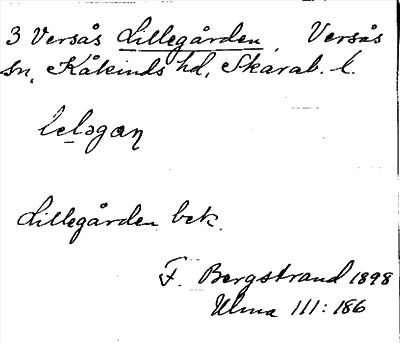 3 Versås Lillegården, Versås
sn, Kåkinds hd, Skarab. l.
leləgan
Lillegården bek.
F. Bergstrand 1898
Ulma 111:186